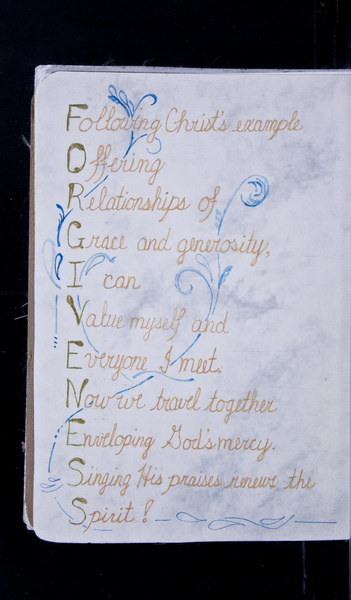 Following Christ's example
Offering
Relationships of
Grace and generosity,
I can
Value myself and
Everyone I meet.
Now we travel together
Enveloping God's mercy.
Singing His praises renews the
Spirit!